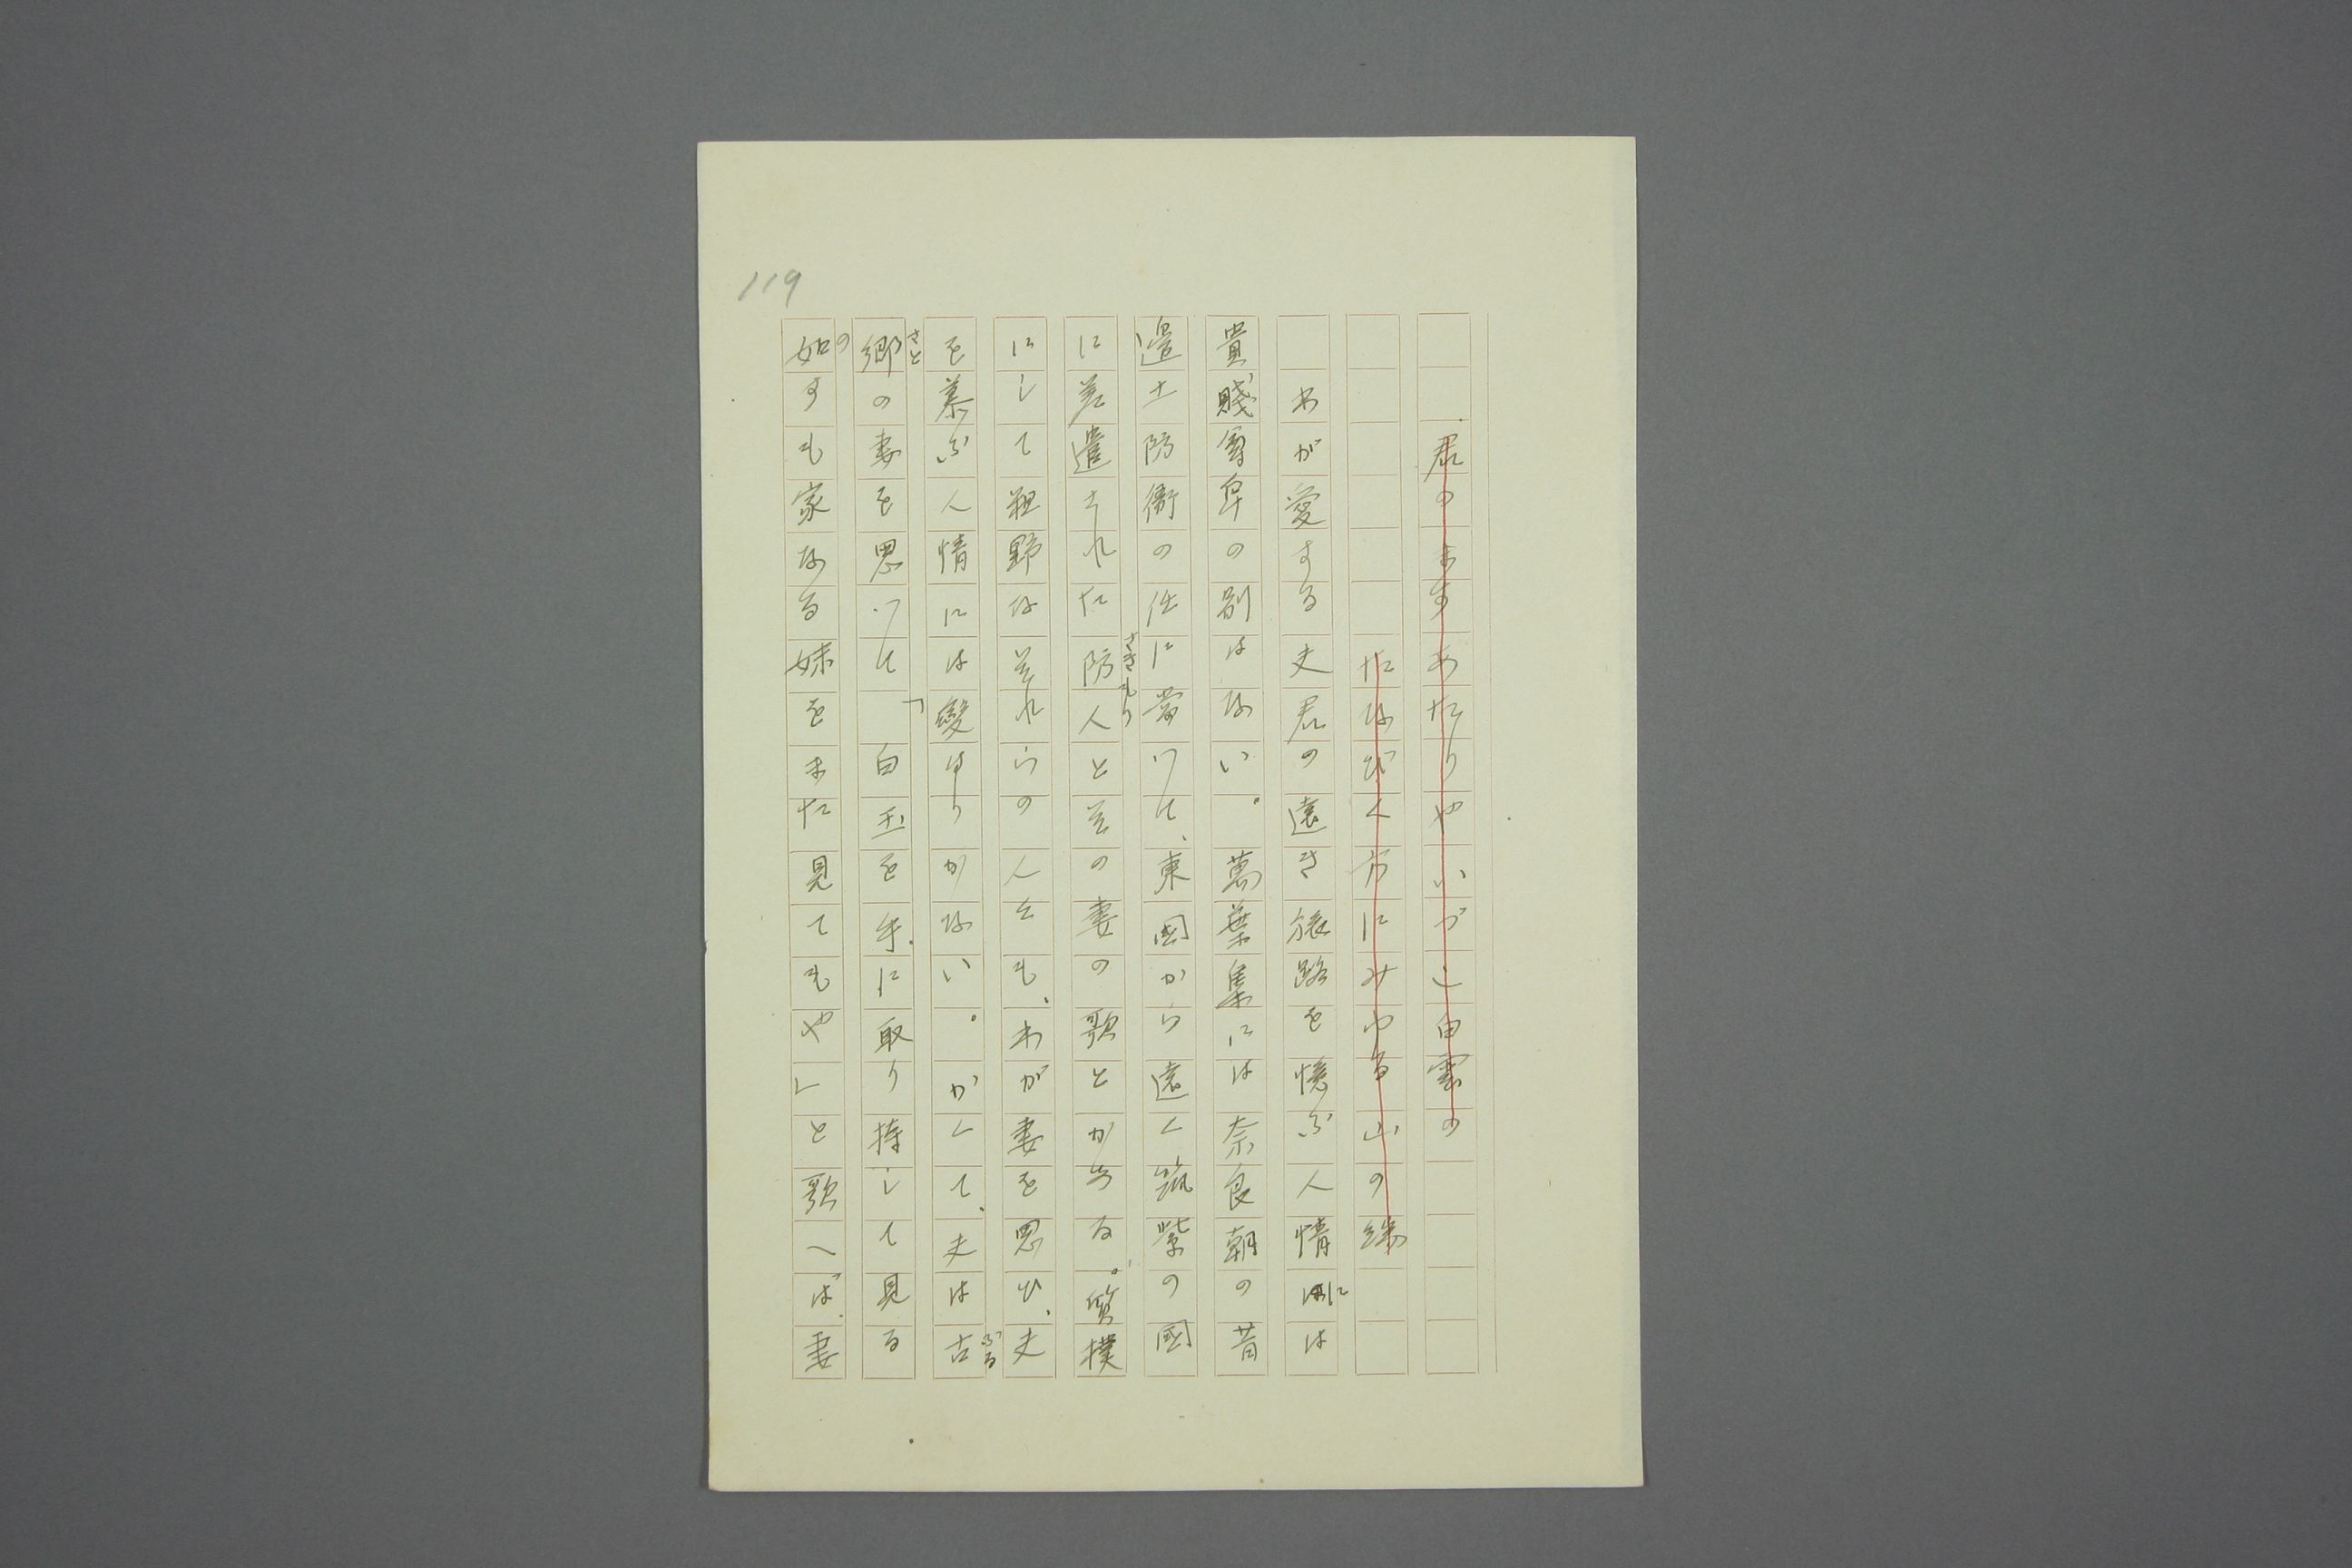 119
君のますあたりやいづこ白雲の
たなびく方にみゆる山の緑
わが愛する夫君の遠き旅路を憶ふ人情には
貴賤尊卑の別はない。萬葉集には奈良朝の昔
邊土防衛の任に當つて、東國から遠く筑紫の國
に差遣された防人と其の妻の歌とがある。質撲
さきもり
にして粗野な其れらの人々も、わが妻を思ひ、夫
を慕ふ人情には變はりがない。かくて、夫は古
ふる
郷の妻を思つて「白玉を手に取り持して見る
さと
如すも家なる妹をまた見てもや」と歌へば、妻
の